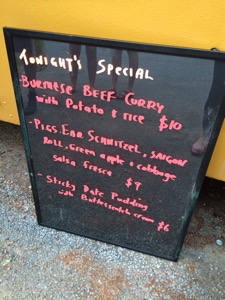 Tonight's Special
- Burmese Beef Curry
with Potato & rice $10
- Pigs Ear Schnitzel, Saigon
Roll, Green apple & cabbage
Salsa fresca $9
- Sticky Date Pudding
with Butterscotch cream $6